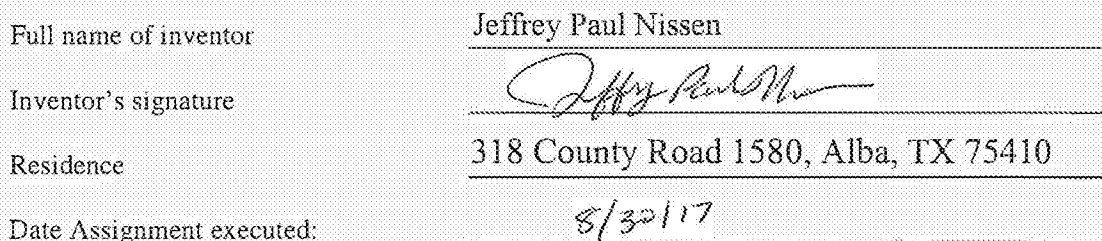 Full name of inventor Jeffrey Paul Nissen
Inventor's signature Jeffry Paul N
Residence 318 County Road 1580, Alba, TX 75410
Date Assignment executed: 8/30/17